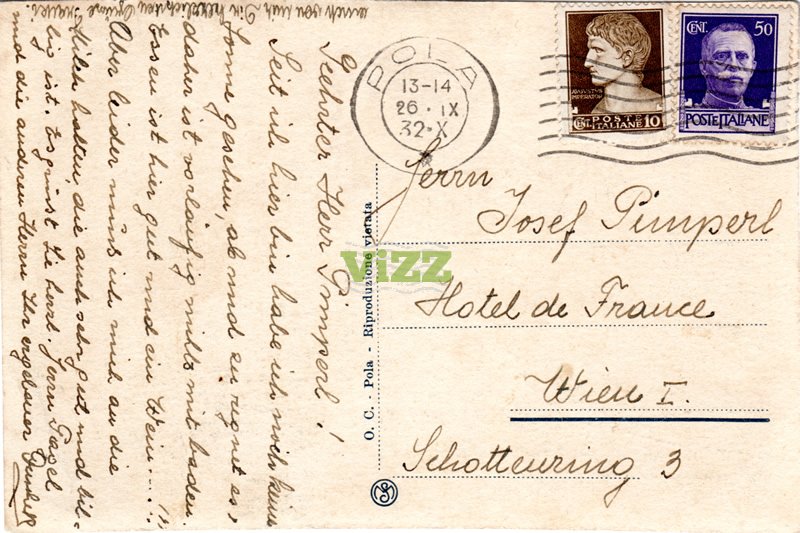 Geehrter Herr Pimperl!
Seit ich hier bin habe ich noch keine
Sonne gesehen, ab und zu regnet es,
daher ist vorläufig nichts mit baden.
Essen ist hier gut und ein Wein....!!
Aber leider muß ich mich an die
Milch halten, die auch sehr gut und bil-
lig ist. Es grüsst Sie herzl. Herrn
und die anderen Herrn Ihr ergebener
auch von mir die herzlichsten Grüsse
POLA
13-14
26·IX
32·X
AUGUSTUS
IMPERATOR
CENT. POSTE ITALIANE 10
CENT. 50
POSTE ITALIANE
Herrn
Josef Pimperl
Hotel de France
Wien I.
Schottenring 3
O. C. - Pola - Riproduzione vietata
ViZZ